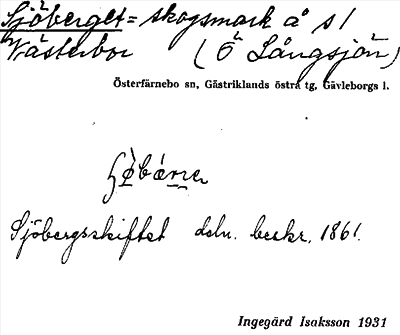 Sjöberget = skogsmark å s/
Västerbor (Ö Långsjön)
Österfärnebo sn, Gästriklands östra tg, Gävleborgs l.
Sjöbergsskiftet dsln. beskr. 1861.
Ingegärd Isaksson 1931